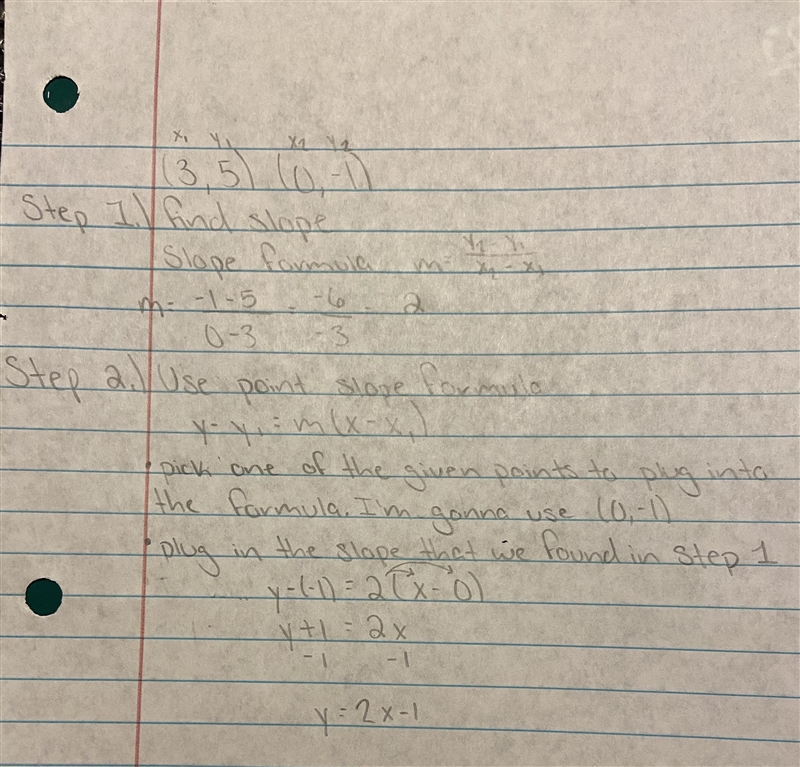 x₁ y₁ x₂ y₂
(3, 5) (0, -1)
Step 1.) find slope
Slope formula m = y₂ - y₁ / x₂ - x₁
m = -1 - 5 / 0 - 3 = -6 / -3 = 2
Step 2.) Use point slope formula
y - y₁ = m(x - x₁)
• pick one of the given points to plug into
the formula. I'm gonna use (0, -1)
• plug in the slope that we found in Step 1
y - (-1) = 2(x - 0)
y + 1 = 2x
-1 -1
y = 2x - 1